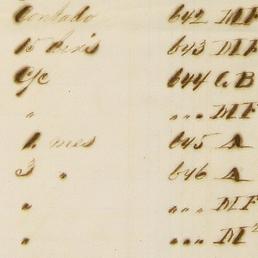 Contado 642 MF
15 dias 643 MF
C/c 644 C B
" " " " MF
1 mes 645 A
3 " 646 A
" " " " MF
" " " " M